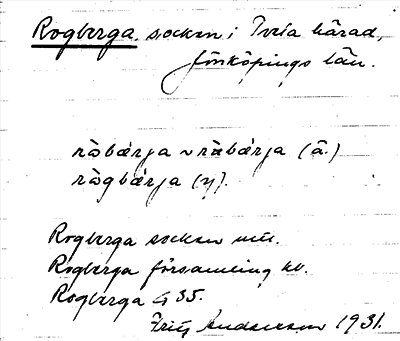 Rogberga socken i Tveta härad,
Jönköpings län.
råbærja ~ råbærja (ä.)
rågbærja (y).
Rogberga socken
Rogberga församling kb.
Rogberga G 35.
Fritz Andersson 1931.